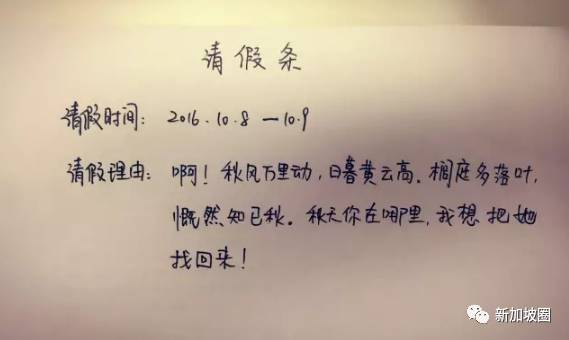 请假条
请假时间：2016.10.8—10.9
请假理由：啊！秋风万里动，日暮黄云高。榈庭多落叶，
慨然知已秋。秋天你在哪里，我想把她
找回来！
新加坡圈